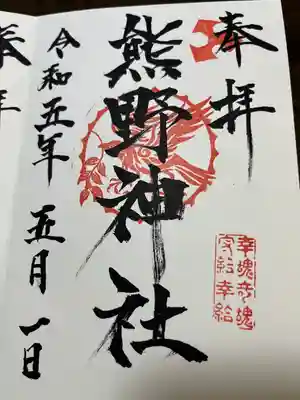 奉拝
熊野神社
幸魂奇魂
守給幸給
令和五年 五月 一日
奉拝